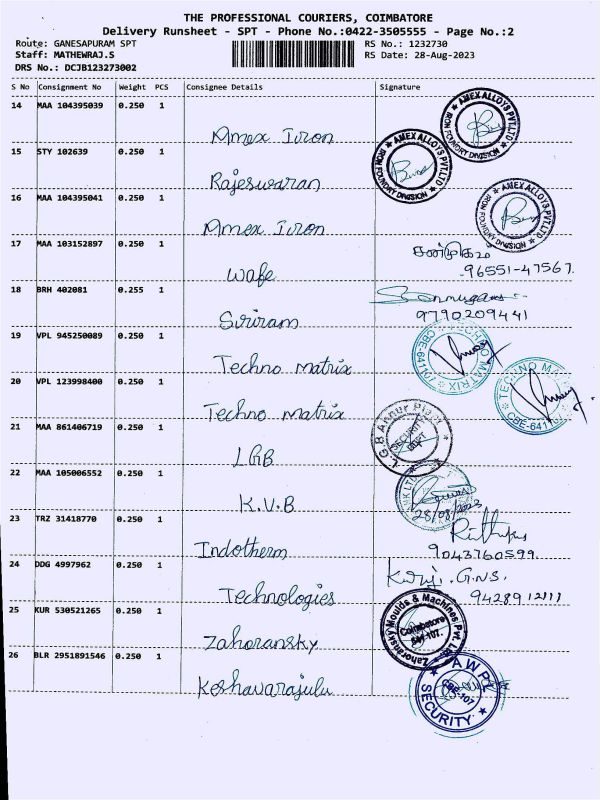 THE PROFESSIONAL COURIERS, COIMBATORE
Delivery Runsheet - SPT - Phone No.:0422-3505555 - Page No.:2
Route: GANESAPURAM SPT
RS No.: 1232730
Staff: MATHEWRAJ.S
RS Date: 28-Aug-2023
DRS No.: DCJB123273002
S No Consignment No Weight PCS Consignee Details Signature
14 MAA 104395039 0.250 1
Amex Iron
AMEX ALLOYS PVT.LTD
IRON FOUNDRY DIVISION
15 STY 102639 0.250 1
Rajeswaran
AMEX ALLOYS PVT.LTD
IRON FOUNDRY DIVISION
16 MAA 104395041 0.250 1
Amex Iron
AMEX ALLOYS PVT.LTD
IRON FOUNDRY DIVISION
17 MAA 103152897 0.250 1
Wafe
96551-47567
18 BRH 402081 0.255 1
Sriram
9790209441
19 VPL 945250089 0.250 1
Techno matrix
TECHNO MATRIX
20 VPL 123998400 0.250 1
Techno matrix
TECHNO
21 MAA 861406719 0.250 1
LGB
L.G.B Annur Plant
SECURITY
DEPT
22 MAA 105006552 0.250 1
K.V.B
28/08/2023
23 TRZ 31418770 0.250 1
Indotherm
9043760599
24 DDG 4997962 0.250 1
Technologies
G.N.S.
25 KUR 530521265 0.250 1
Zahoransky
Zahoransky Moulds & Machines Pvt
Coimbatore
26 BLR 2951891546 0.250 1
Keshavarajulu
CBE-107
SECURITY